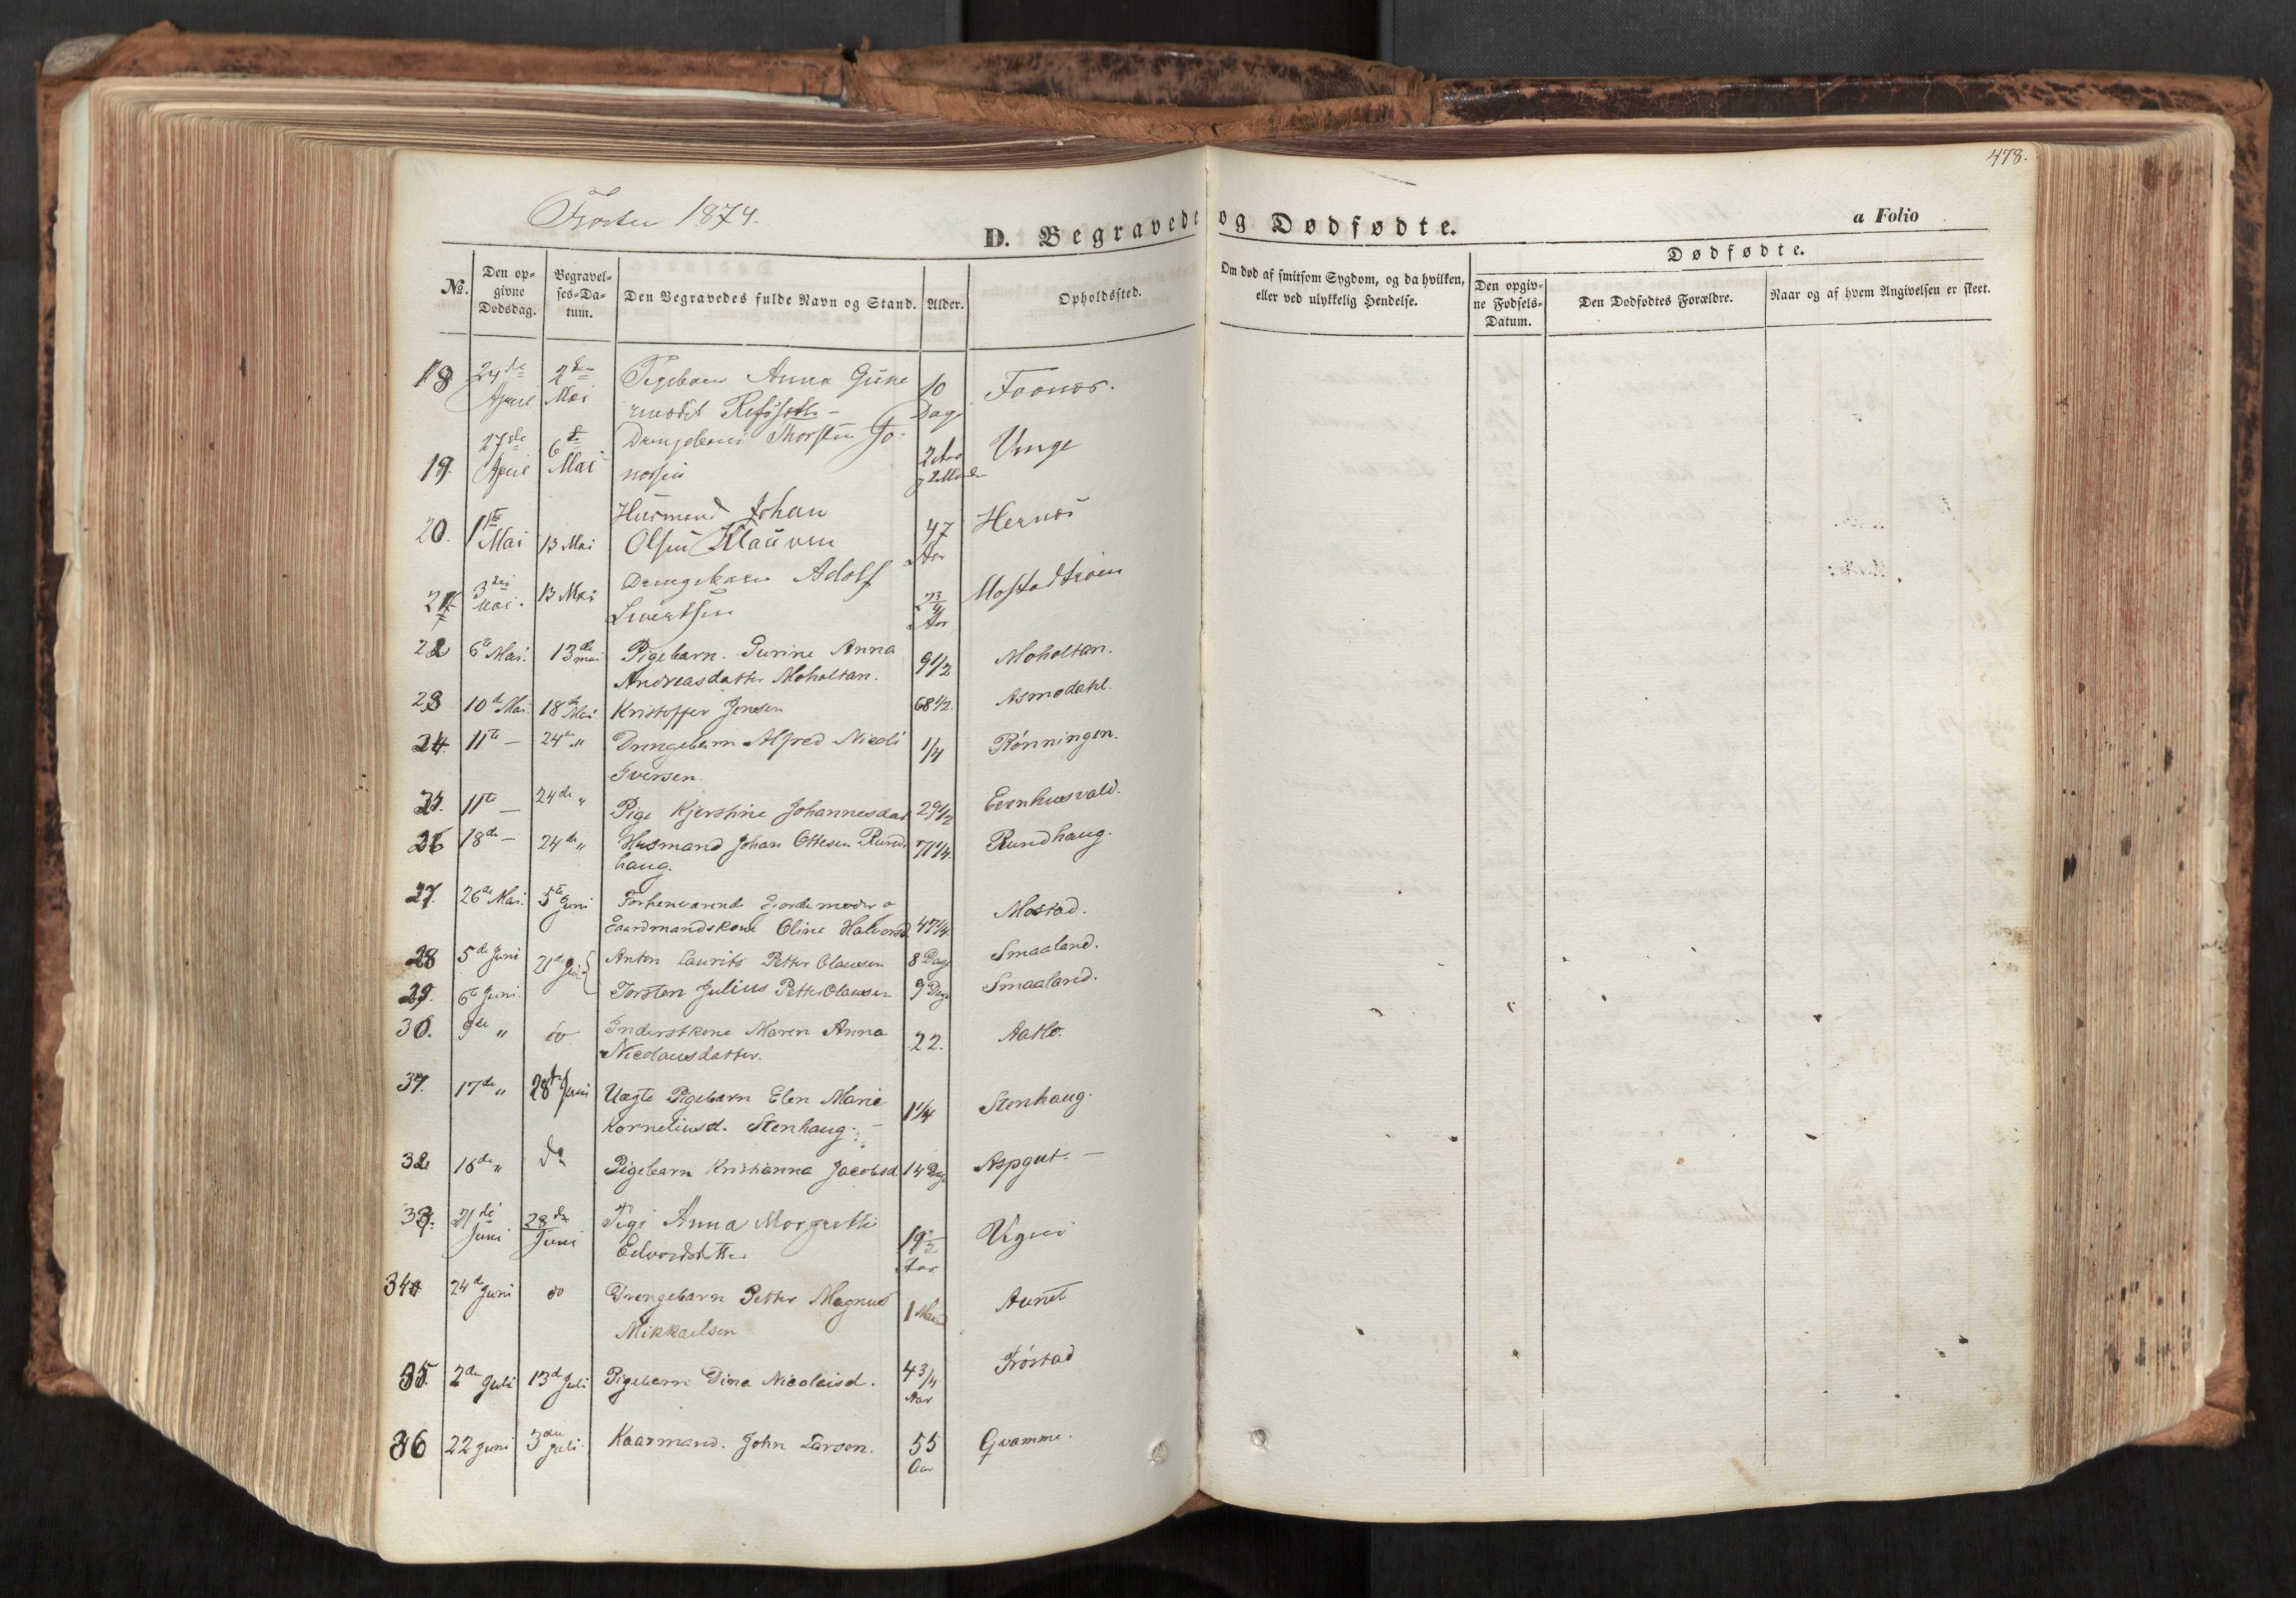 478.
Frosten 1874.
D. Begravede og Dødfødte.
a Folio
No.
Den opgivne Dødsdag.
Begravelses-Datum.
Den Begravedes fulde Navn og Stand.
Alder.
Opholdssted.
Om død af smitsom Sygdom, og da hvilken, eller ved ulykkelig Hendelse.
Dødfødte.
Den opgivne Fødsels-Datum.
Den Dødfødtes Forældre.
Naar og af hvem Angivelsen er skeet.
18 24de April 2den Mai Pigebarn Anna 10 Dage
19. 27de April 6te Mai Drengebarn Thorsten Jo- 2 Aar Vinge
20. 1ste Mai 13 Mai Husmand Johan 47 Aar Hernes
Olsen
21 3die Mai. 13 Mai Drengebarn Adolf 2 3/4 Aar
22 6te Mai. 13de mai Pigebarn. Gurine Anna 9 1/2 Moholtan.
Andreasdatter Moholtan.
23 10de Mai. 18de Mai. Kristoffer Jensen 68 1/2. Asmodahl.
24. 11te — 24de " Drengebarn Alfred Nicoli 1/4 Rønningen.
Iversen.
25. 11te — 24de " Pige Kjerstine Johannesdat 29 1/2
26 18de — 24de " Husmand Johan Ottesen Rund- 71 1/4. Rundhaug.
haug.
27. 26de Mai. 5te Juni Forhenværende Gjordemoder o Mostad.
Gaardmandskone Oline Halvorsd. 47 1/4.
28 5de Juni 21de Juni { Anton Laurits Petter Olausen 8 Dage Smaaland.
29. 6te Juni. Torsten Julius Petter Olausen 9 Dage Smaaland.
30. 9de " do Inderstkone Maren Anna 22. Aatlo.
Nicolausdatter.
31. 17de " 28de Juni Uægte Pigebarn Elen Marie 1 1/4 Stenhaug.
Korneliusd. Stenhaug. —
32 16de " do Pigebarn Kristianna Jacobsd. 14 Dage —
33. 21de Juni 28de Juni Pige Anna Margrethe 19 1/2 Aar
34 24de Juni do Drengebarn Petter Magnus 1 Aunet
Mikkaelsen
35. 2den Juli 13de Juli Pigebarn Dina Nicolaisd. 4 3/4 Aar
36 22 juni 3die juli. Kaarmand. John Larsen. 55 Aar Qvamme.